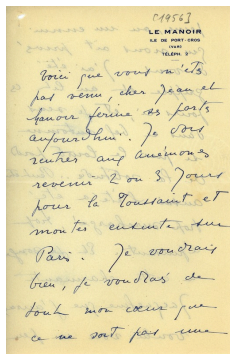 [1956]
LE MANOIR
ILE DE PORT-CROS
(VAR)
TÉLÉPH. 2
Voici que vous n'êts
pas venu, cher Jean et
Manoir ferme ses ports
aujourd'hui. Je dois
rentrer aux Anémones
revenir 2 ou 3 jours
pour la Toussaint et
monter ensuite sur
Paris. Je voudrais
bien, je voudrais de
tout mon cœur que
ce ne soit pas une